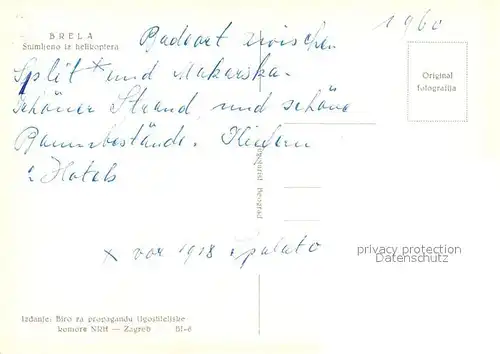 BRELA
Snimljeno iz helikoptera
1960
Badeort zwischen
Split * und Makarska.
Schöner Strand und schöne
Baumbestände. Kiefern
2 Hotels
x vor 1918 Spalato
Original
fotografija
Beograd
privacy protection
watermark
Izdanje: Biro za propagandu Ugostiteljske
komore NRH — Zagreb BI-6